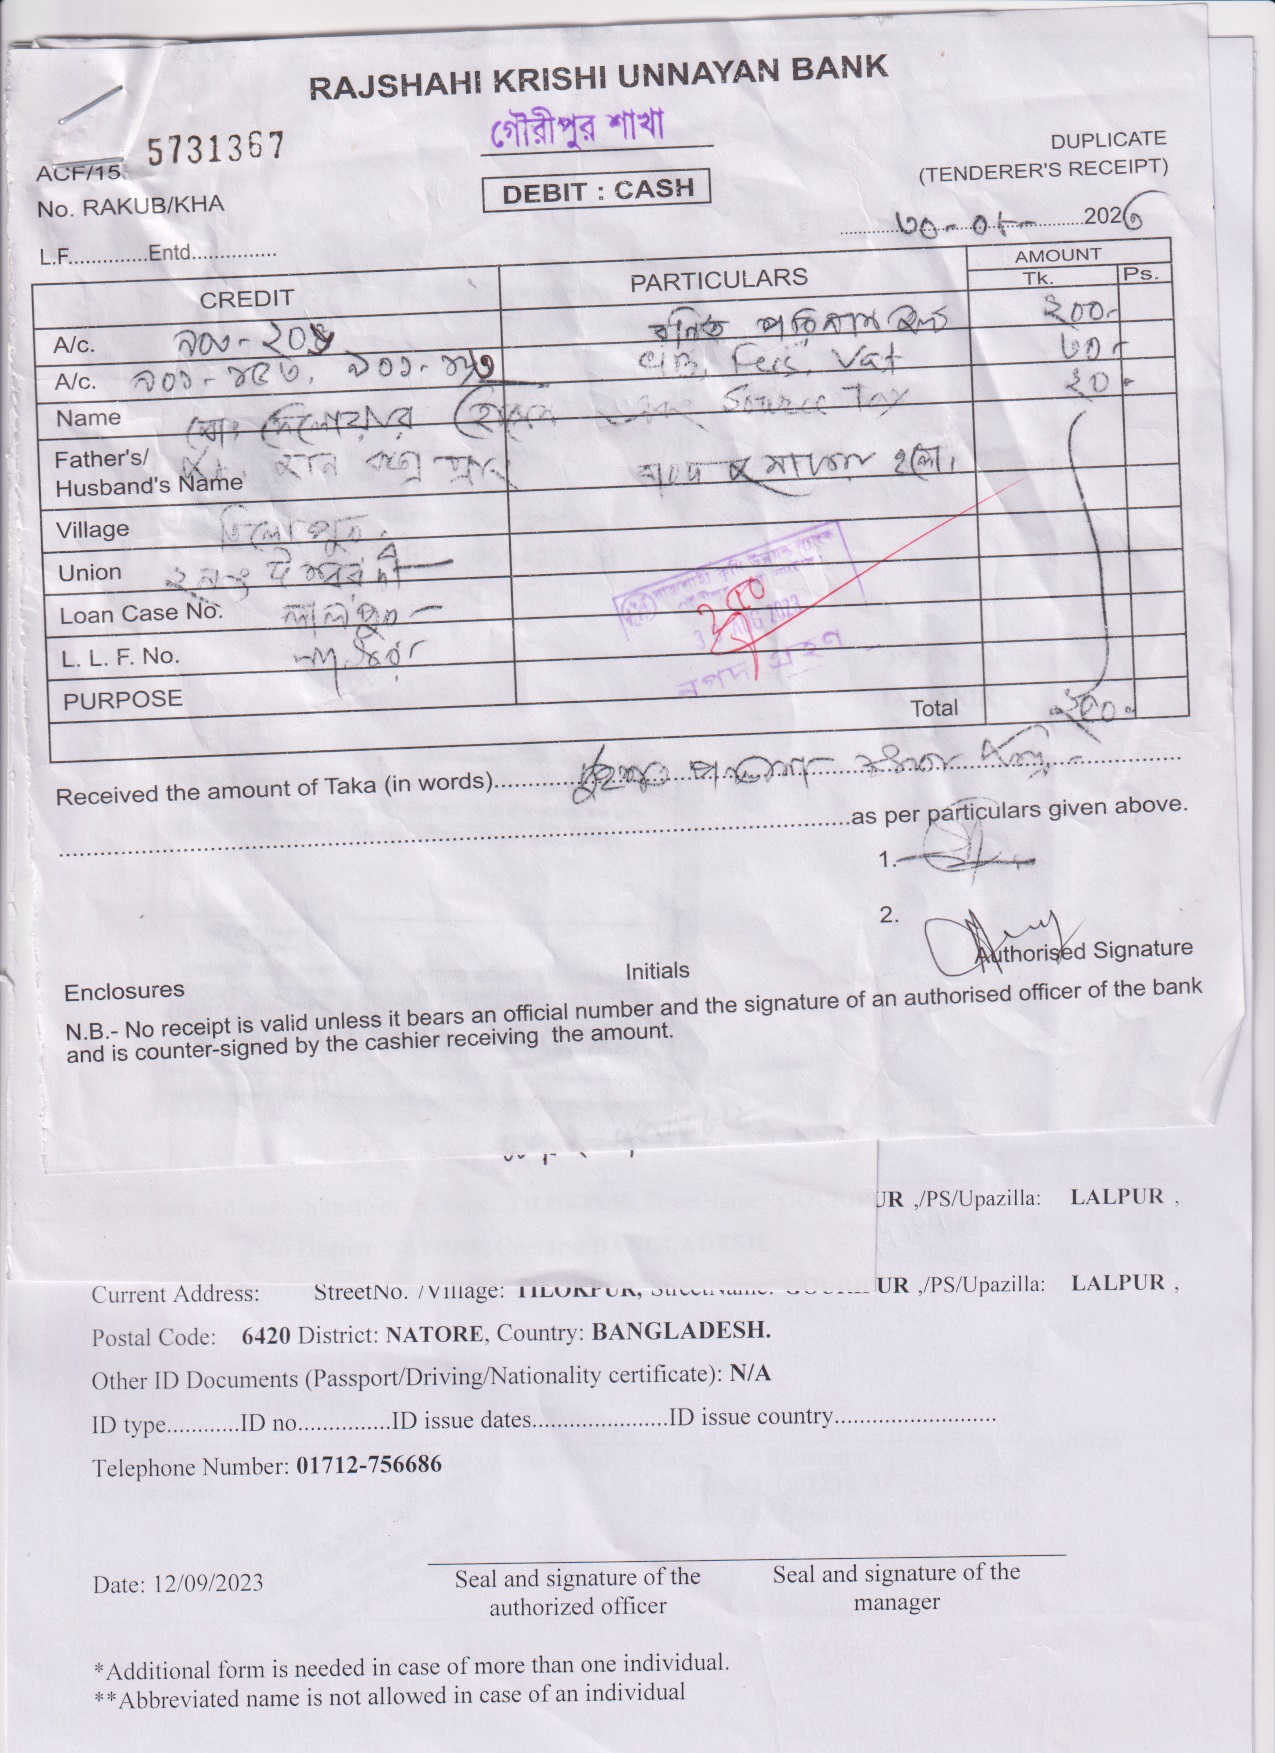 RAJSHAHI KRISHI UNNAYAN BANK
গৌরীপুর শাখা
5731367
ACF/15
No. RAKUB/KHA
DEBIT : CASH
DUPLICATE
(TENDERER'S RECEIPT)
৩০-০৮- 202
L.F..............Entd...............
CREDIT PARTICULARS AMOUNT
Tk. Ps.
A/c. ২০০
A/c. Fees, Vat ৩০
Name Source Tax ২০
Father's/
Husband's Name হলো।
Village
Union ২নং ঈশ্বরদী
Loan Case No. লালপুর
L. L. F. No. নাটোর
PURPOSE
Total ২৫০
২৫০
নগদ গ্রহণ
Received the amount of Taka (in words) দুইশত পঞ্চাশ টাকা
as per particulars given above.
1.
2.
Authorised Signature
Initials
Enclosures
N.B.- No receipt is valid unless it bears an official number and the signature of an authorised officer of the bank
and is counter-signed by the cashier receiving the amount.
UR ,/PS/Upazilla: LALPUR ,
Current Address: StreetNo. /Village: TILOKPUR, UR ,/PS/Upazilla: LALPUR ,
Postal Code: 6420 District: NATORE, Country: BANGLADESH.
Other ID Documents (Passport/Driving/Nationality certificate): N/A
ID type............ID no...............ID issue dates......................ID issue country..........................
Telephone Number: 01712-756686
Date: 12/09/2023
Seal and signature of the
authorized officer
Seal and signature of the
manager
*Additional form is needed in case of more than one individual.
**Abbreviated name is not allowed in case of an individual